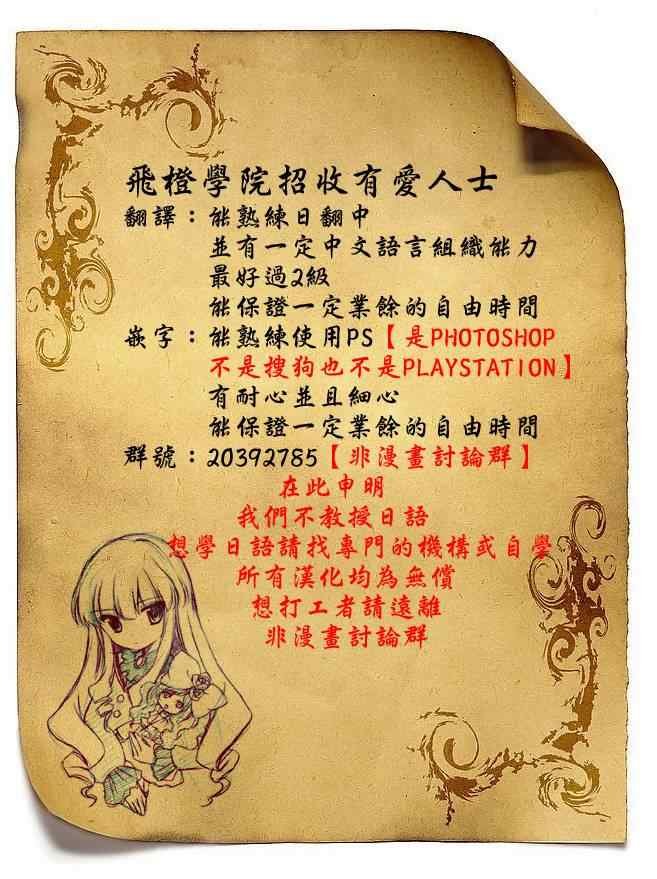 飛橙學院招收有愛人士
翻譯：能熟練日翻中
並有一定中文語言組織能力
最好過2級
能保證一定業餘的自由時間
嵌字：能熟練使用PS【是PHOTOSHOP
不是搜狗也不是PLAYSTATION】
有耐心並且細心
能保證一定業餘的自由時間
群號：20392785【非漫畫討論群】
在此申明
我們不教授日語
想學日語請找專門的機構或自學
所有漢化均為無償
想打工者請遠離
非漫畫討論群